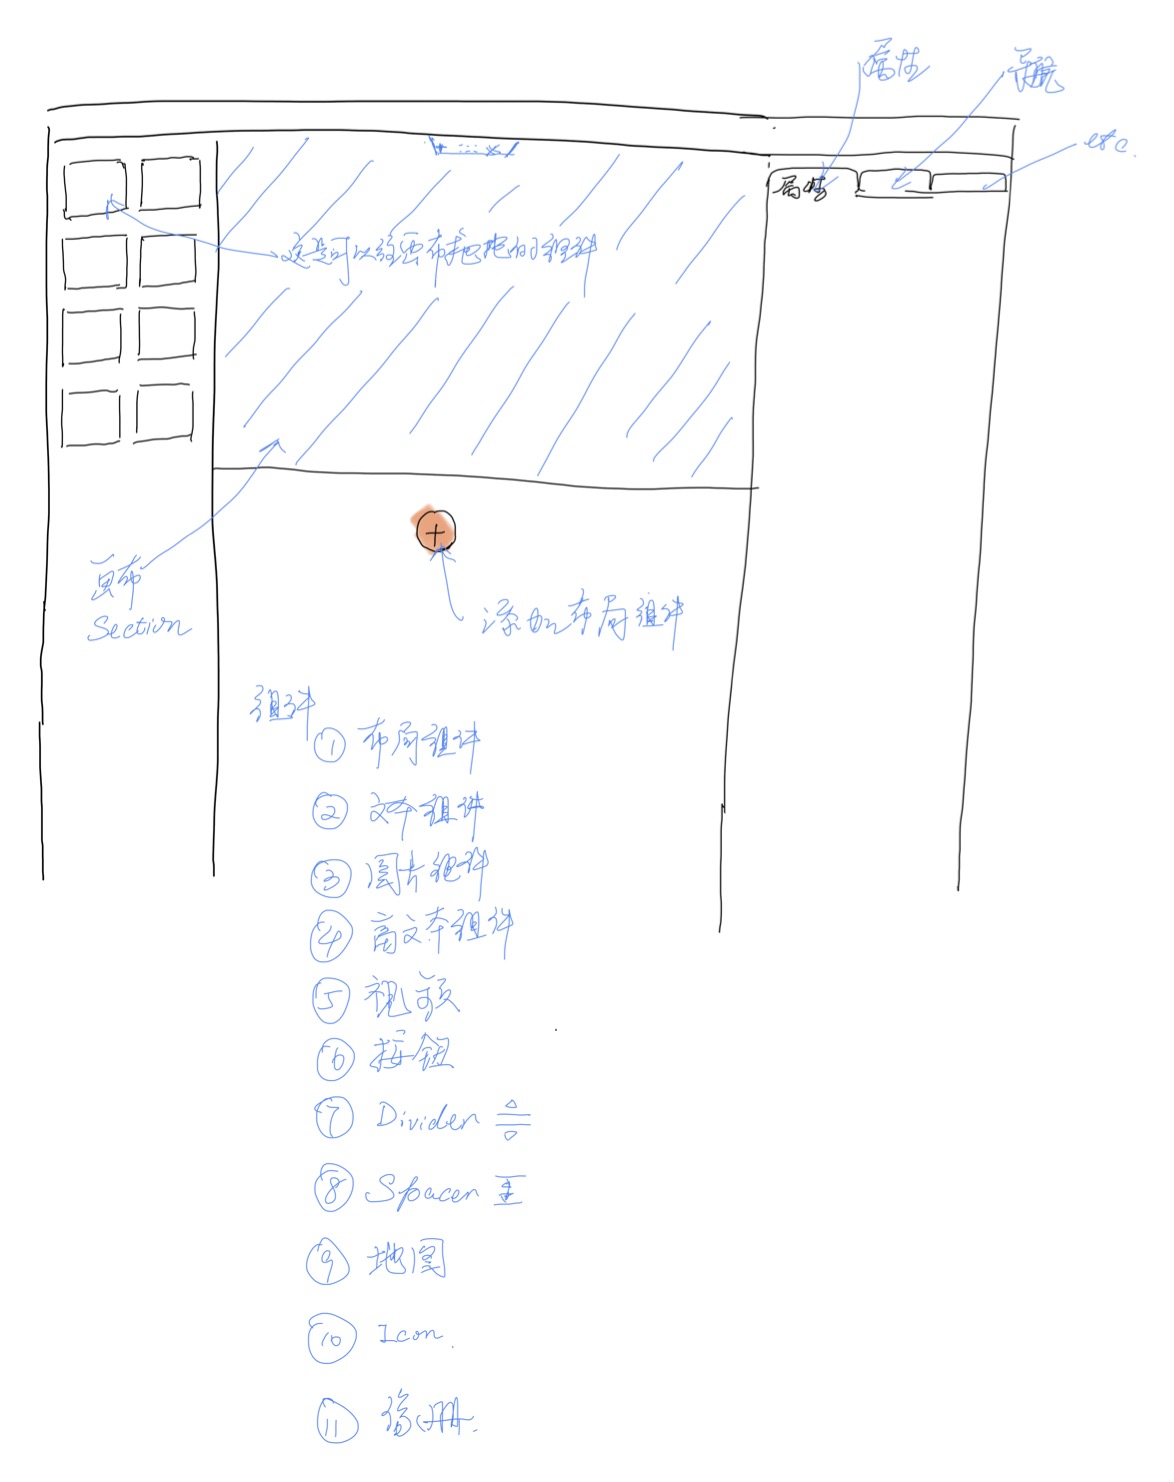 属性
导航
etc.
属性
这是可以往画布拖拽的组件
+
画布
Section
添加布局组件
组件
① 布局组件
② 文本组件
③ 图片组件
④ 富文本组件
⑤ 视频
⑥ 按钮
⑦ Divider
⑧ Spacer
⑨ 地图
⑩ Icon.
⑪